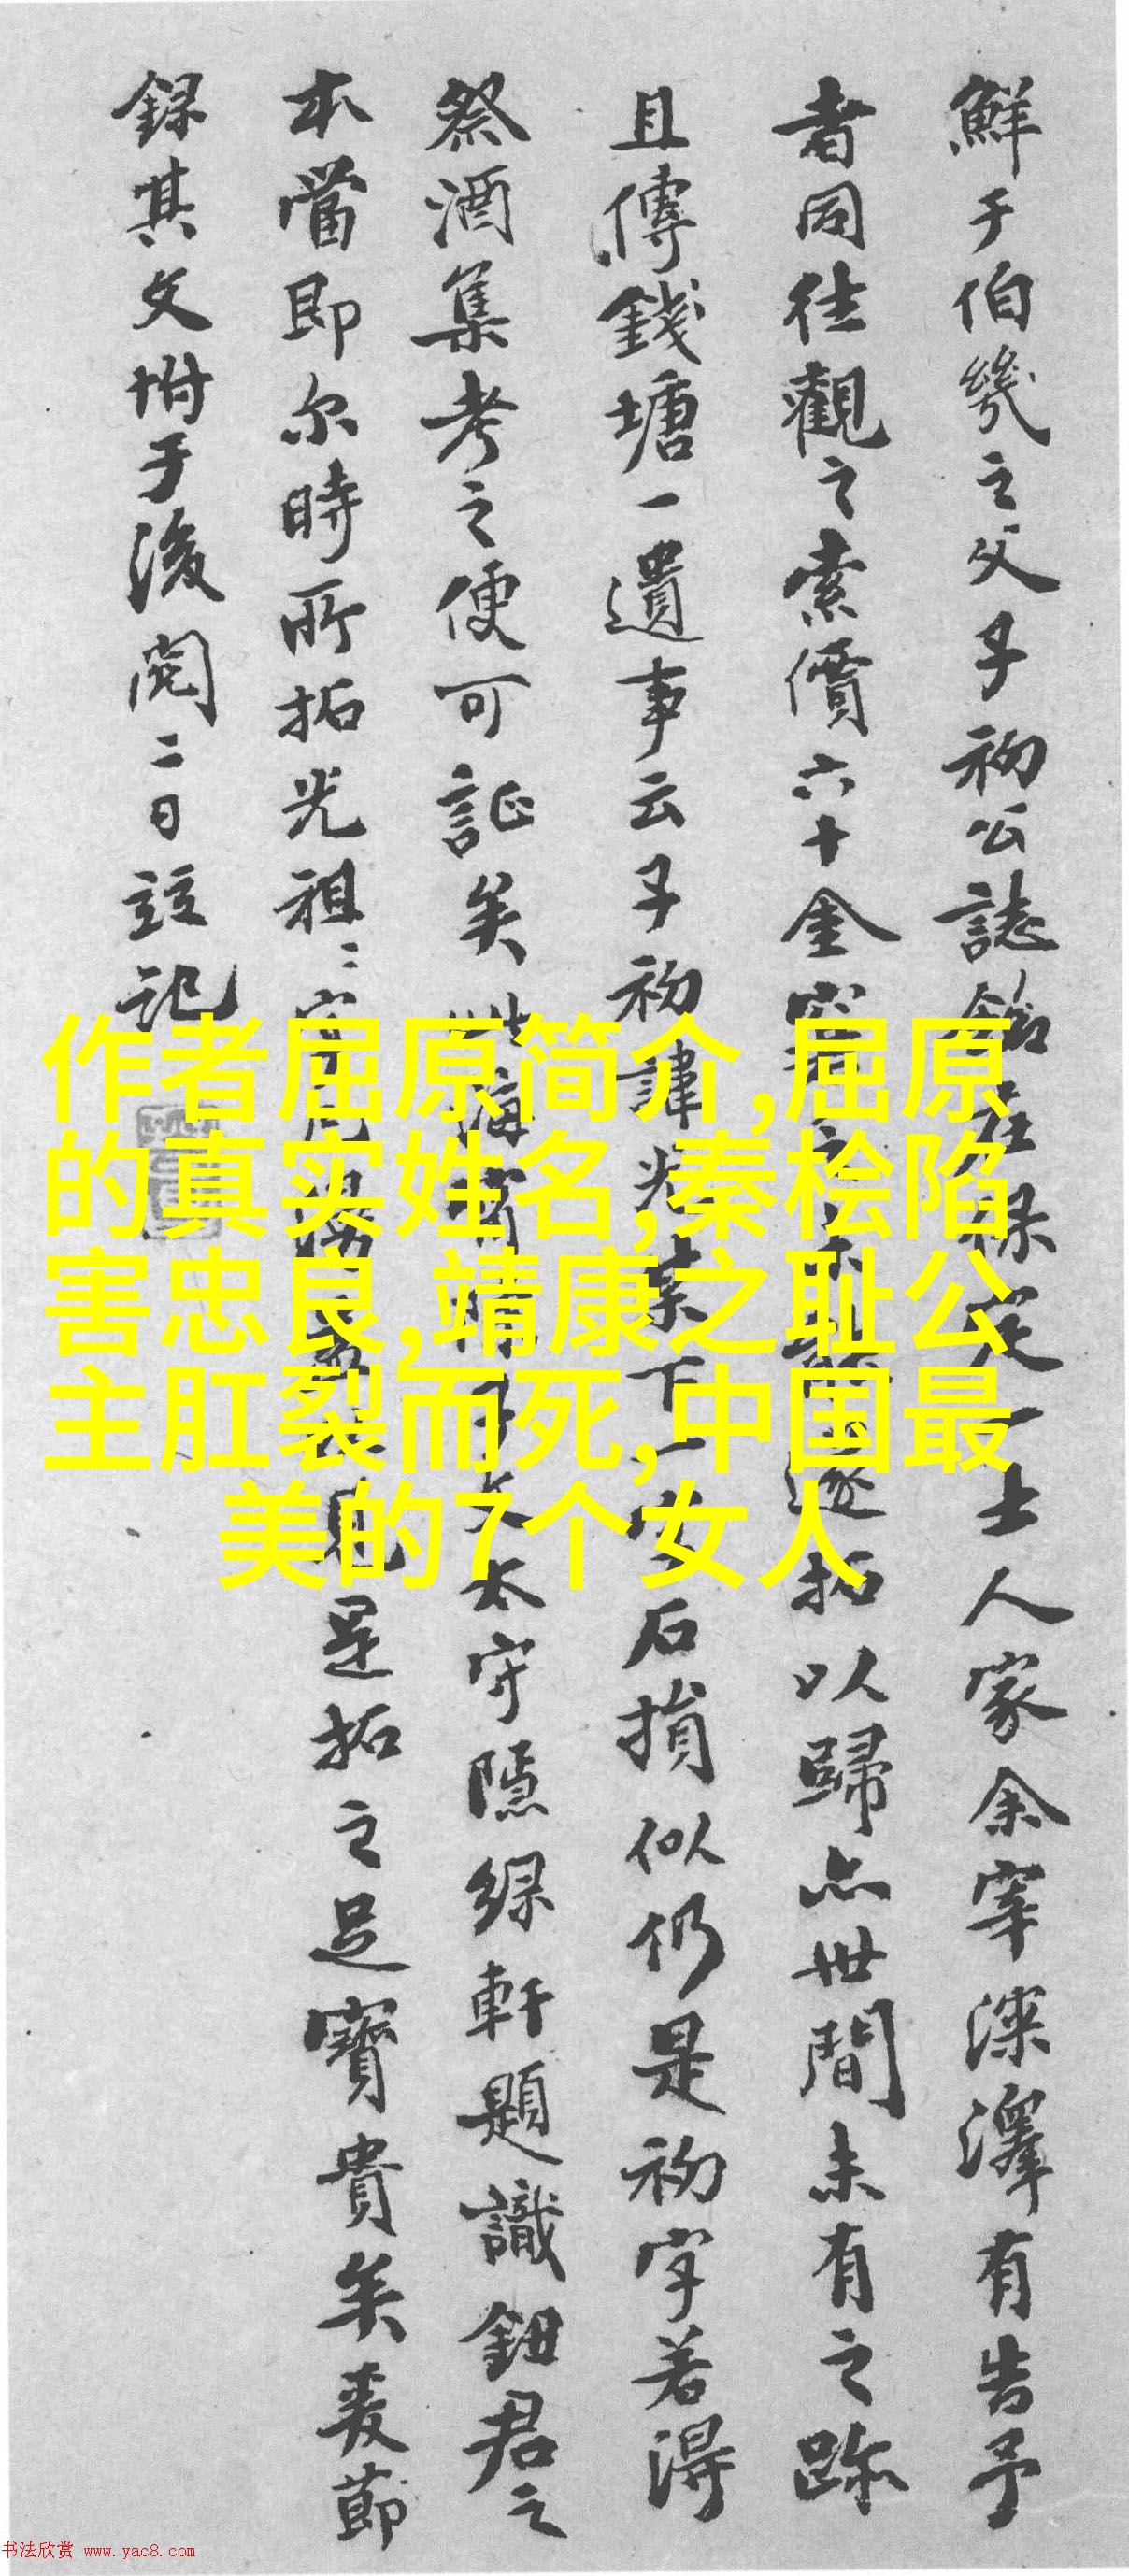 鮮于伯幾之父子初公誌銘在保定一士人家余宰深澤有告予
者同往觀之索價六十金
拓以歸亦世間未有之跡
且傳錢塘一遺事云子初諱光某下一字石損似仍是初字若得
祭酒集考之便可証矣
太守隱綠軒題識鈕君之
本當即尔時所拓光祖〻字
是拓之足寶貴矣爰節
録其文坿于後閱二日竝記
作者屈原简介,屈原
的真实姓名,秦桧陷
害忠良,靖康之耻公
主肛裂而死,中国最
美的7个女人
书法欣赏 www.yac8.com